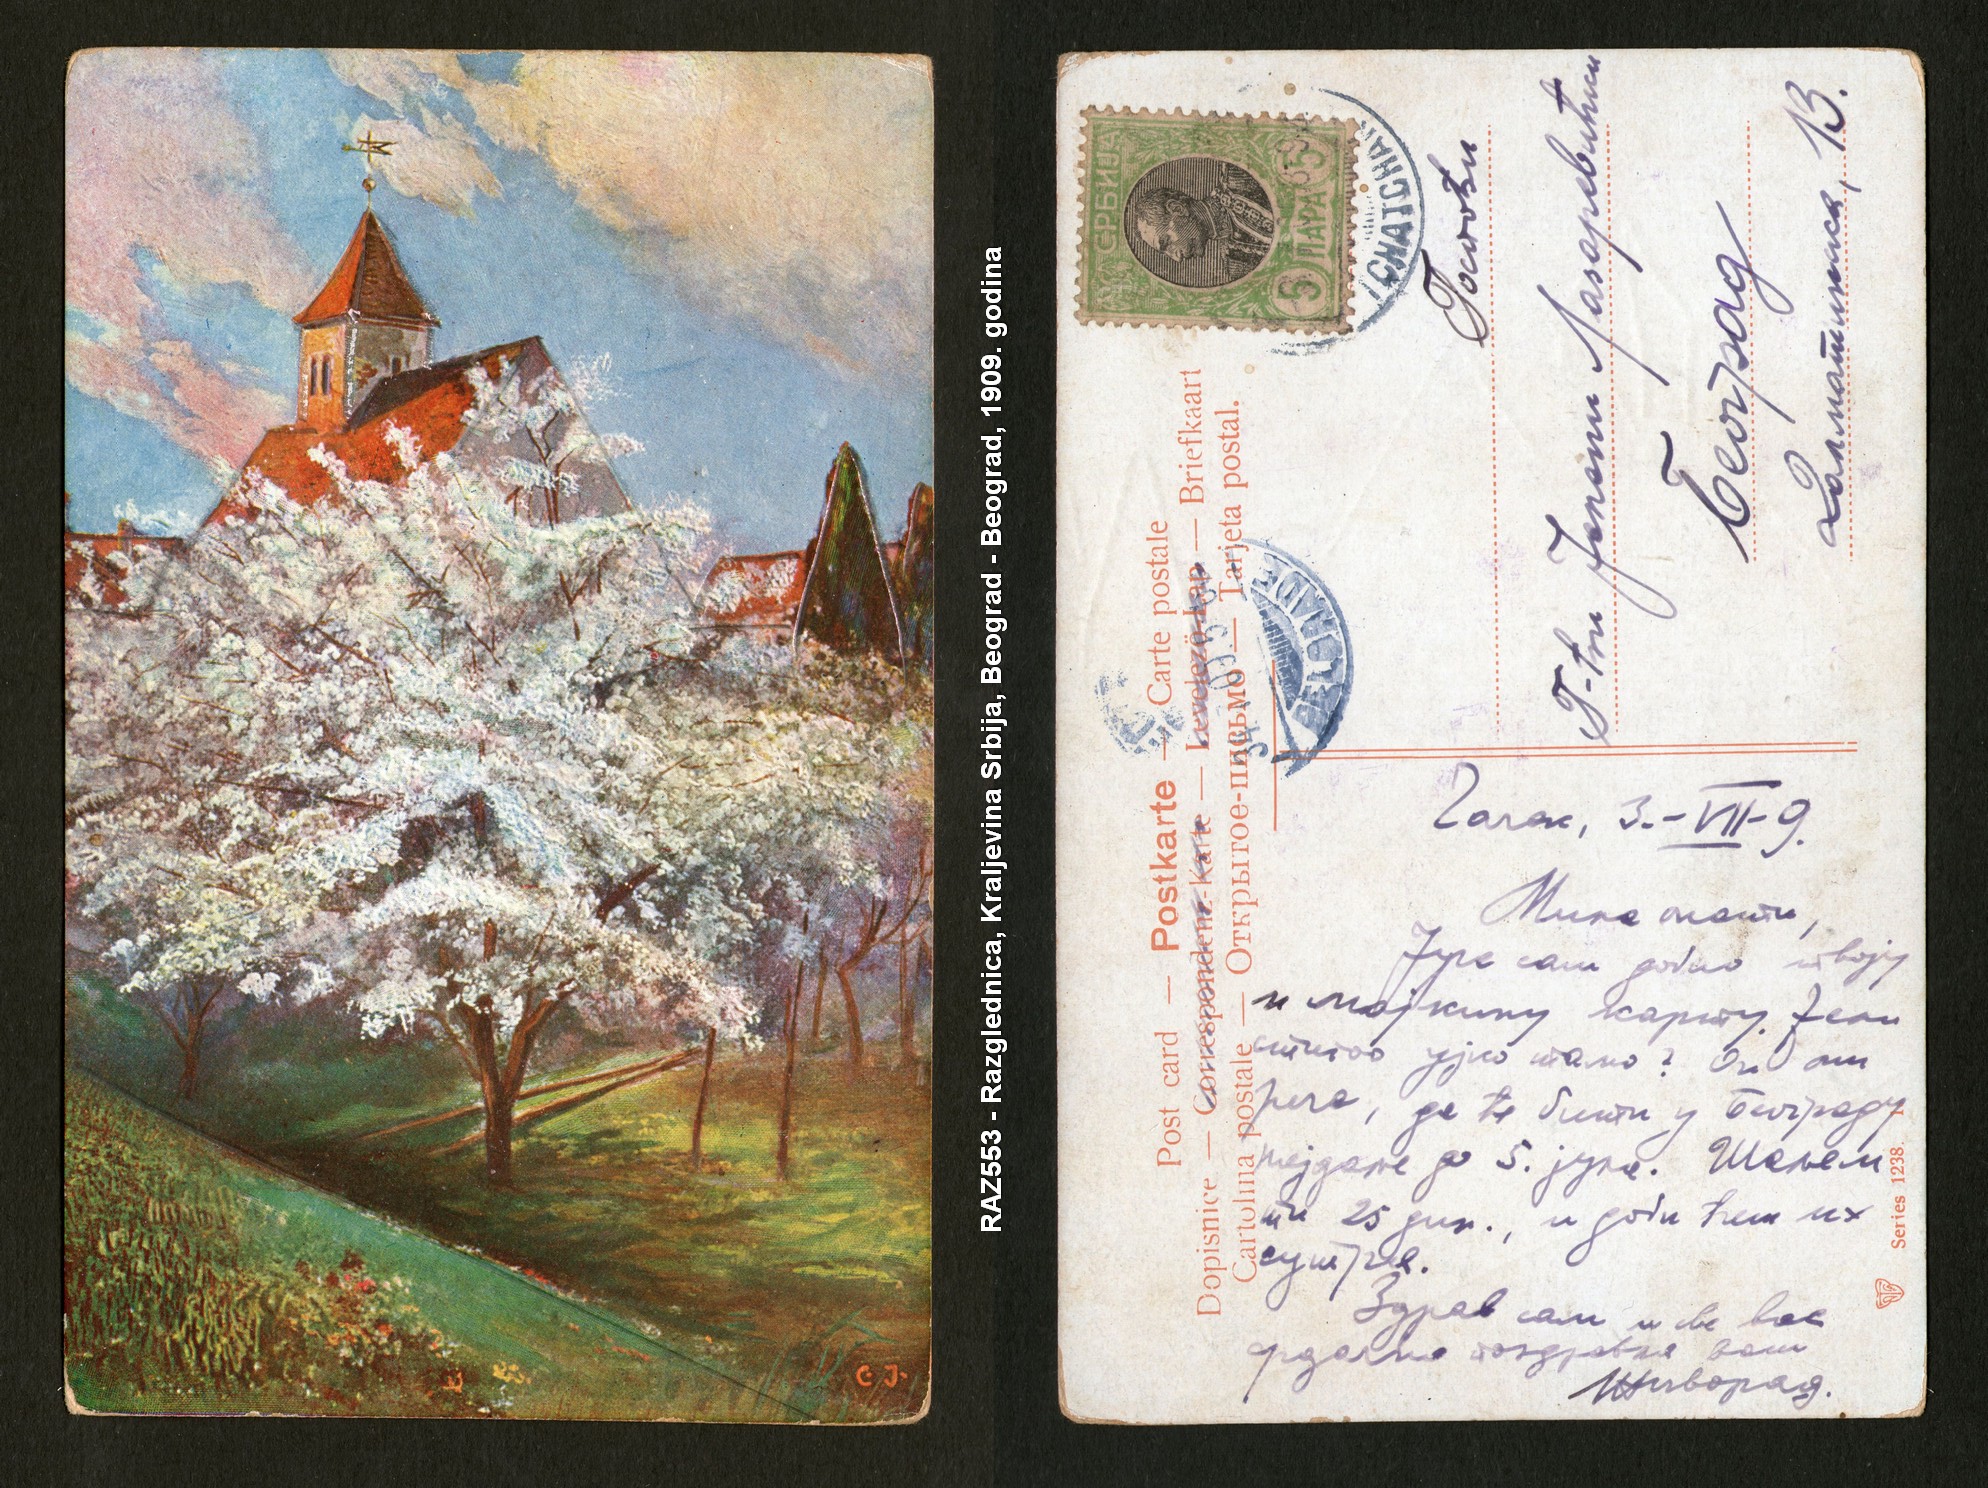 C. J.
RAZ553 - Razglednica, Kraljevina Srbija, Beograd - Beograd, 1909. godina
СРБИЈА
5 ПАРА 5
TCHATCHAK
BELGRADE
Post card — Postkarte — Carte postale
Dopisnice — Correspondenz-Karte — Levelezö-Lap — Briefkaart
Cartolina postale — Открытое-письмо — Tarjeta postal.
Госпођи
Г-ђи Јеноми Лазаревићки
Београд
Далматинска, 13.
Чачак, 3.-VII-9.
Мила мати,
Јуче сам добио твоју
и мајкину карту. Је ли
стигао ујко тамо? Он ми
рече, да ће бити у Београду
најдаље до 5. јула. Шаљем
ти 25 дин., и добићеш их
сутра.
Здрав сам и све вас
срдачно поздравља ваш
Живорад.
Series 1238.